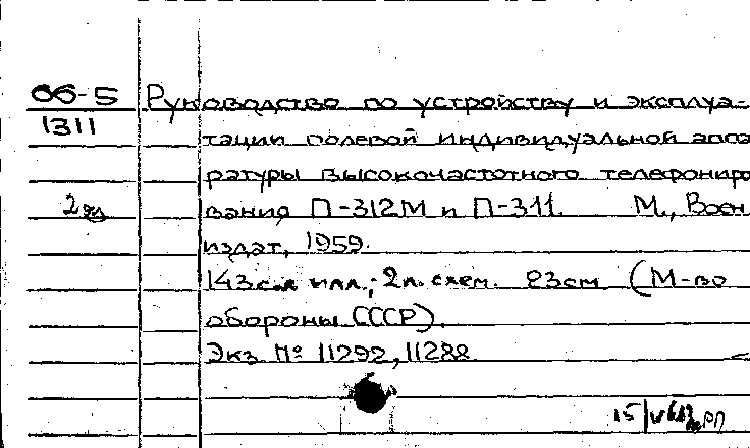 66-5 Руководство по устройству и эксплуа-
1311
тации полевой индивидуальной аппа
ратуры высокочастотного телефониро
2 экз вания П-312М и П-311. М., Воен
издат, 1959.
143 с. илл.; 2 л. схем. 23 см (М-во
обороны СССР).
Экз. № 11292, 11288
15/V